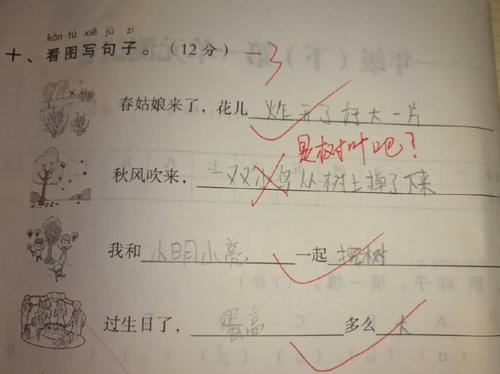 kàn tú xiě jù zi
十、看图写句子。（12分） -3
春姑娘来了，花儿 炸开了好大一片
是树叶吧？
秋风吹来，一双双小鸟从树上掉了下来
我和小明小亮一起 挖树
过生日了， 蛋高 多么 大